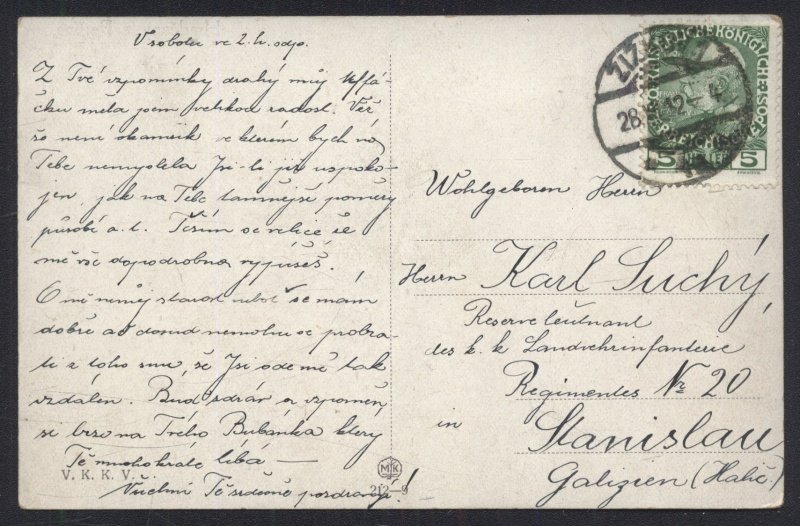 V sobotu ve 2 h. odp.
Z Tvé vzpomínky drahý můj
čku měla jsem velikou radost. Věř
že není okamžik ve kterém bych na
Tebe nemyslela Jsi-li již uspoko-
jen, jak na Tebe tamnější poměry
působí a. t. Těším se velice že
mě vše dopodrobna vypíšeš.
O mě neměj starost neboť se mám
dobře ač dosud nemohu se probra-
ti z toho snu, že Jsi ode mě tak
vzdálen. Buď zdráv a vzpomeň
si brzo na Tvého Bubánka který
Tě mnohokráte líbá —
Všichni Tě srdečně pozdravují!
V. K. K. V.
MK
212-9
28. 12- 4
5 HELLER 5
Wohlgeboren Herrn
Herrn Karl Suchý,
Reserveleutnant
des k. k Landwehrinfanterie
Regimentes Nr 20
in Stanislau
Galizien (Halič.)